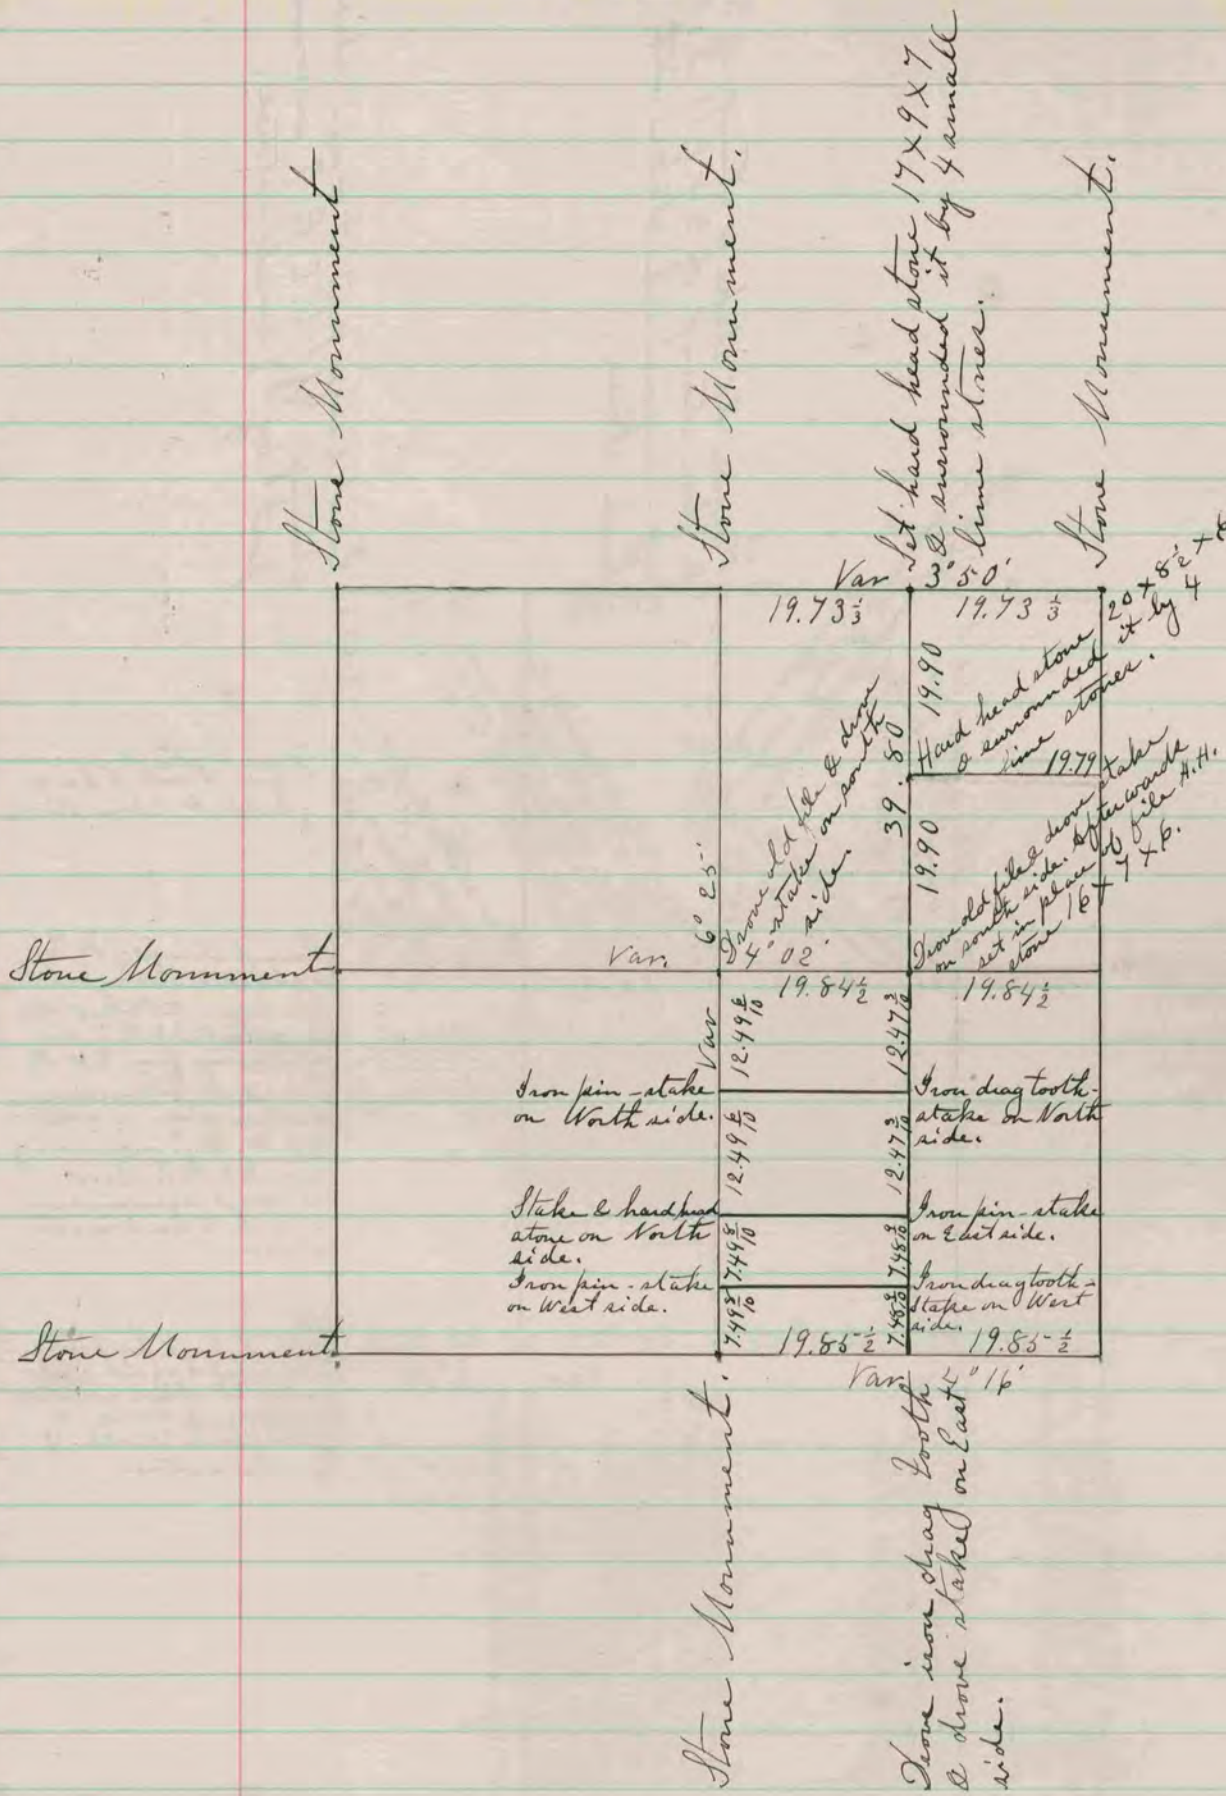 Stone Monument
Stone Monument.
Set hard head stone 17 X 9 X 7
& surrounded it by 4 small
lime stones.
Stone Monument.
Var 3° 50'
19.73 1/3
19.73 1/3
19.90
39.80
Hard head stone 20 X 8 1/2 X
& surrounded it by 4
lime stones.
19.79
19.90
Drove old file & drove
stake on south
side.
Drove old file & drove stake
on south side. Afterwards
set in place of file H.H.
stone 16 X 7 X 6.
Stone Monument
Var. 4° 02'
Var 6° 25'
19.84 1/2
19.84 1/2
12.49 6/10
12.47 3/10
Iron pin - stake
on North side.
Iron drag tooth -
stake on North
side.
12.49 6/10
12.47 3/10
Stake & hard head
stone on North
side.
Iron pin - stake
on East side.
7.49 8/10
7.48 9/10
Iron pin - stake
on West side.
Iron drag tooth -
Stake on West
side.
7.49 8/10
7.48 9/10
Stone Monument.
19.85 1/2
19.85 1/2
Var. 4° 16'
Stone Monument.
Drove iron drag tooth
& drove stake on East
side.